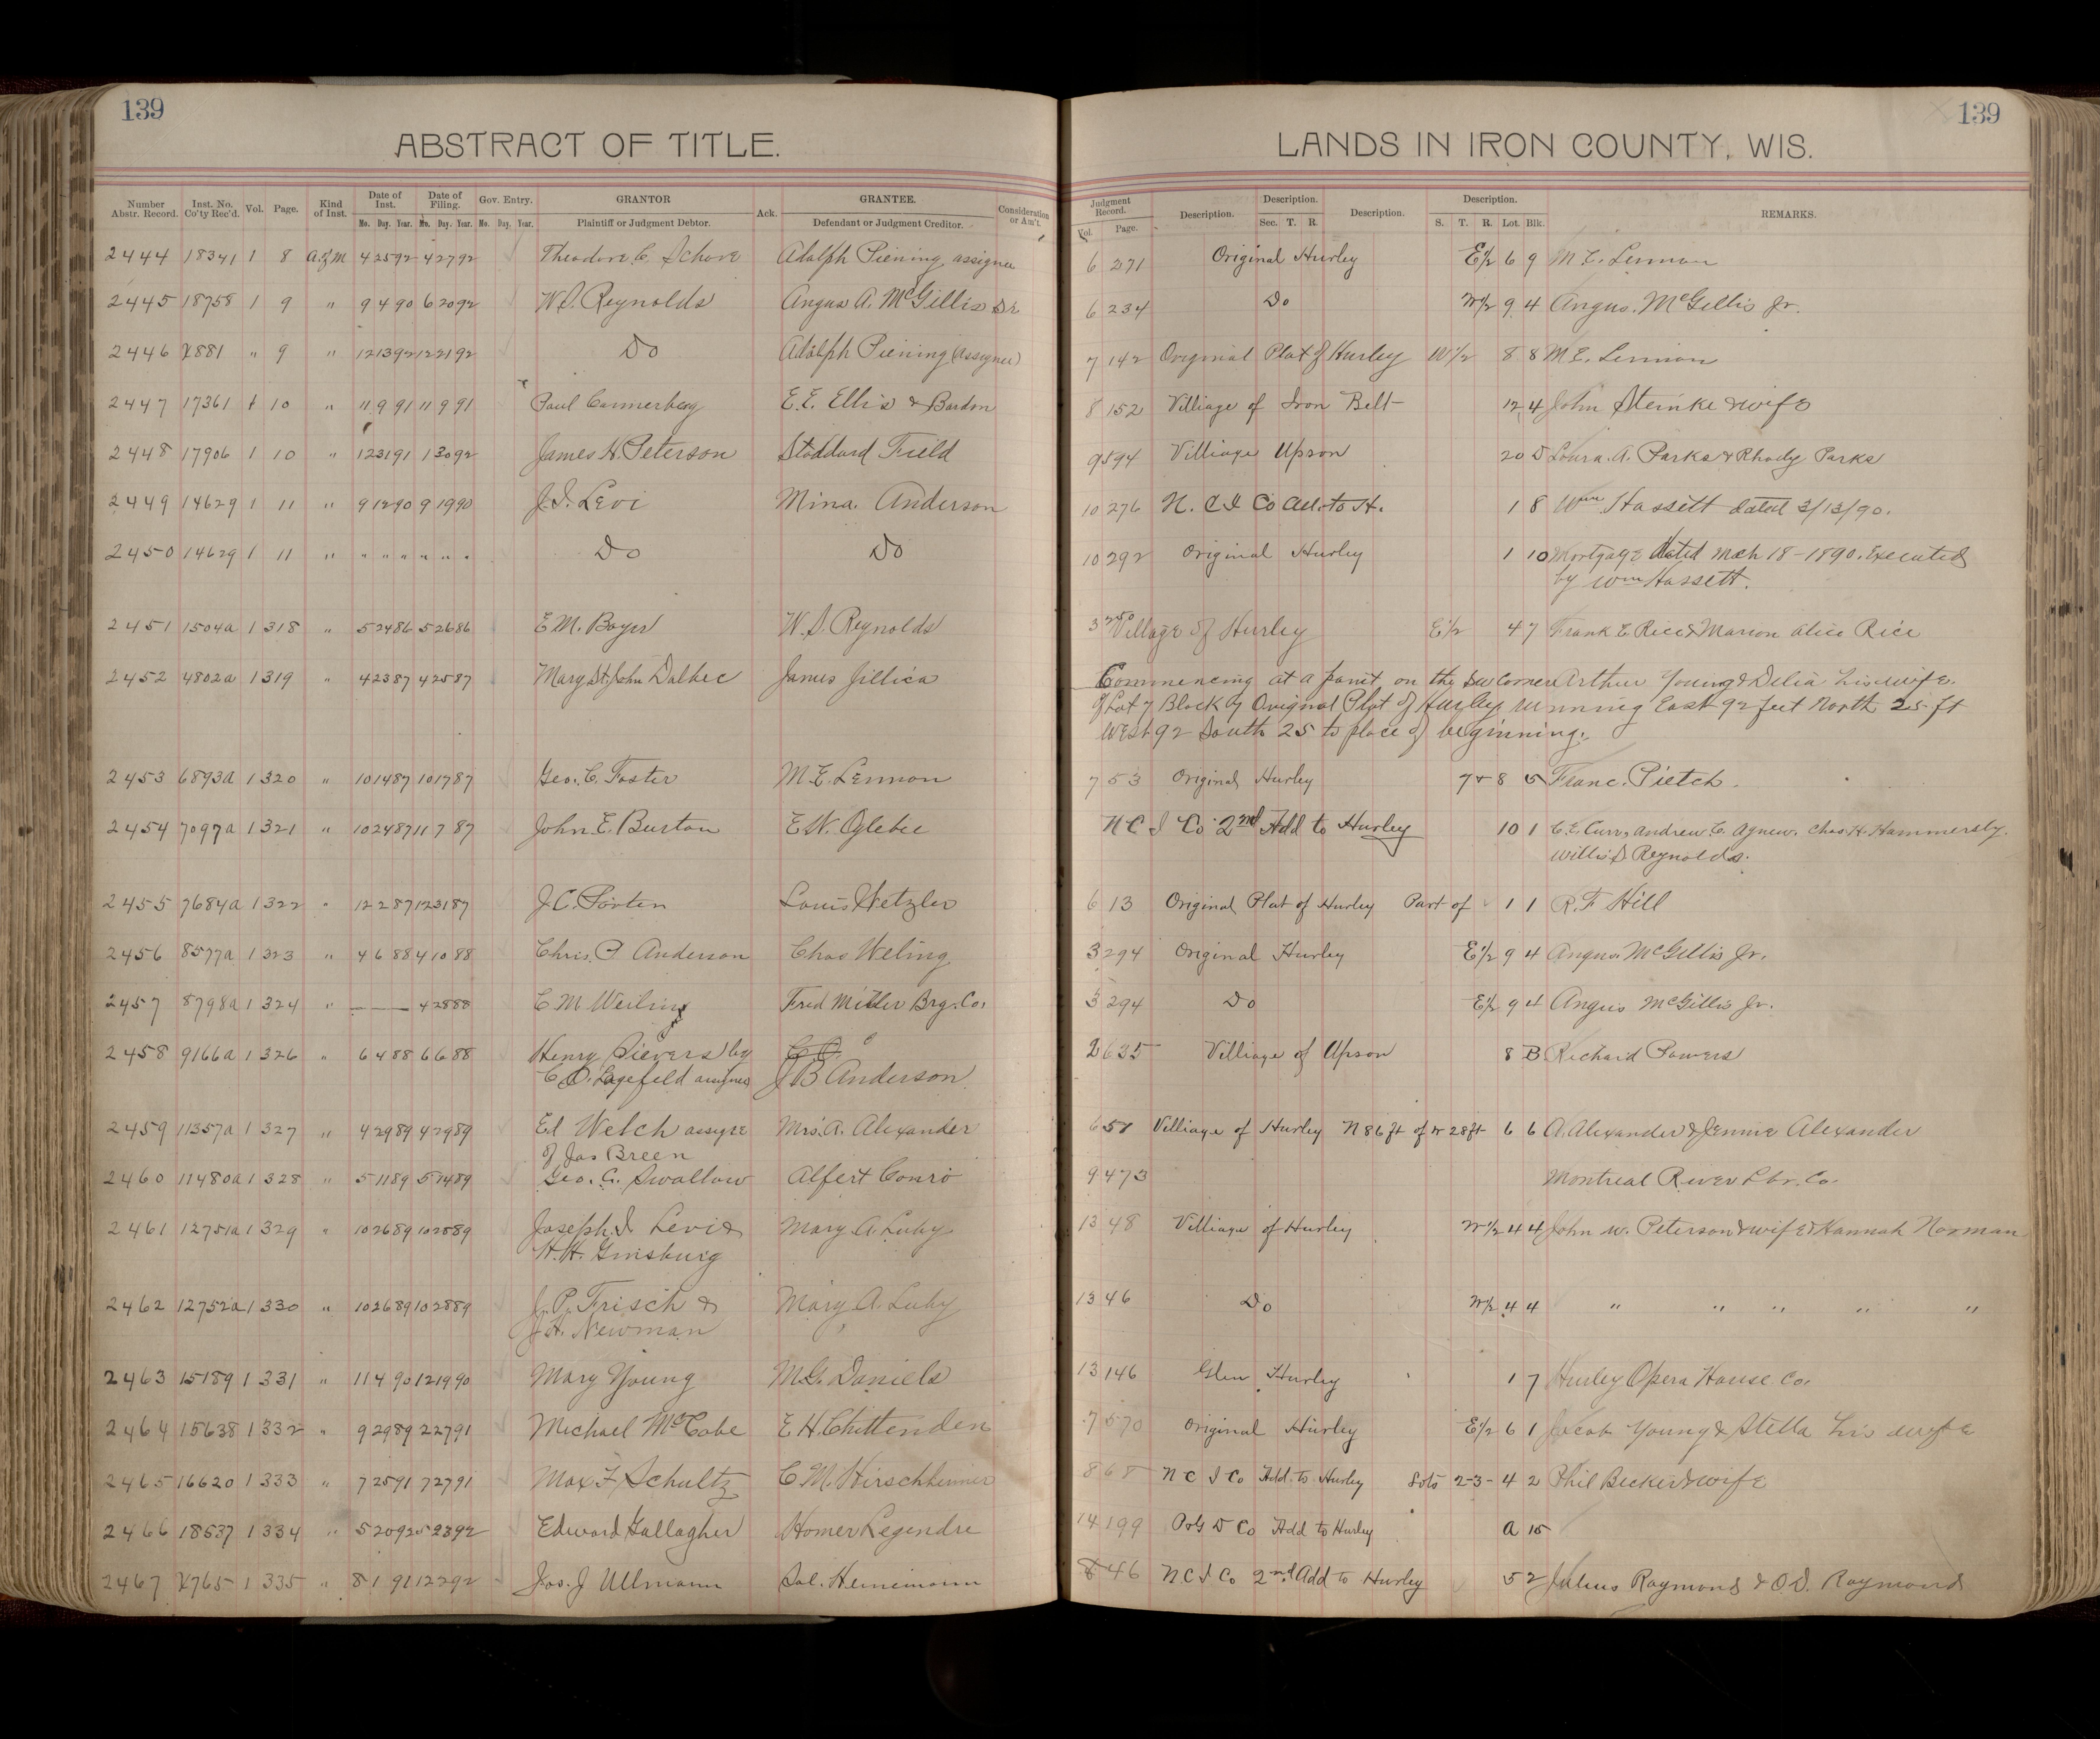 139
139
ABSTRACT OF TITLE.
LANDS IN IRON COUNTY, WIS.
Number Abstr. Record. Inst. No. Co'ty Rec'd. Vol. Page. Kind of Inst. Date of Inst. Date of Filing. Gov. Entry. GRANTOR Ack. GRANTEE. Consideration or Am't. Judgment Record. Description. Description. Description. Description. REMARKS.
Mo. Day. Year. Mo. Day. Year. Mo. Day. Year. Plaintiff or Judgment Debtor. Defendant or Judgment Creditor. Vol. Page. Sec. T. R. S. T. R. Lot. Blk.
2444 18341 1 8 A of M 4 25 92 4 27 92 Theodore C. Schove Adolph Piening assignee 6 271 Original Hurley E1/2 6 9 M. E. Lennon
2445 18758 1 9 " 9 4 90 6 20 92 W.S. Reynolds Angus A. McGillis Sr 6 234 Do W1/2 9 4 Angus. McGillis Jr.
2446 X881 " 9 " 12 13 92 12 21 92 Do Adolph Piening (Assignee) 7 142 Original Plat of Hurley W1/2 8 8 M.E. Lennon
2447 17361 1 10 " 11 9 91 11 9 91 Paul Cannerberg E.E. Ellis & Bardon 8 152 Villiage of Iron Belt 12 4 John Steinke & wife
2448 17906 1 10 " 12 31 91 1 30 92 James H. Peterson Stoddard Field 9 594 Villiage Upson 20 D Loura. A. Parks & Rhody Parks
2449 14629 1 11 " 9 12 90 9 19 90 J.S. Levi Mina. Anderson 10 276 N. C. I. Co Ad. to H. 1 8 Wm Hassett dated 3/13/90.
2450 14629 1 11 " " " " " " " Do Do 10 292 Original Hurley 1 10 Mortgage dated Mch 18-1890. Executed
by Wm Hassett.
2451 1504a 1 318 " 5 24 86 5 26 86 E.M. Boyer W.S. Reynolds 3 250 Village of Hurley E1/2 4 7 Frank E Rice & Marion Alice Rice
2452 4802a 1 319 " 4 23 87 4 25 87 Mary St. John Dalbec James Jillica Commencing at a point on the SW Corner Arthur Young & Delia his wife.
of Lot 7 Block 9 Original Plat of Hurley running East 92 feet North 25 ft
West 92 South 25 to place of beginning.
2453 6893a 1 320 " 10 14 87 10 17 87 Geo. C. Foster M.E. Lennon 7 53 Original Hurley 7 & 8 5 Franc. Pietch.
2454 7097a 1 321 " 10 24 87 11 7 87 John E. Burton E.W. Oglebie N C I Co 2nd Add to Hurley 10 1 C.E. Curr, Andrew C. Agnew. Chas. H. Hammersly.
Willis S Reynolds.
2455 7684a 1 322 " 12 2 87 12 31 87 J.C. Porten Louis Wetzler 6 13 Original Plat of Hurley Part of 1 1 R.F Hill
2456 8577a 1 323 " 4 6 88 4 10 88 Chris. P Anderson Chas Weling 3 294 Original Hurley E1/2 9 4 Angus. McGillis Jr.
2457 8798a 1 324 " — — 4 28 88 C M Weiling Fred Miller Brg. Co. 3 294 Do E1/2 9 4 Angus McGillis Jr.
2458 9166a 1 326 " 6 4 88 6 6 88 Henry Sievers by J B Anderson 2 635 Villiage of Upson 8 B Richard Powers
C. O. Lagefeld assignee
2459 11357a 1 327 " 4 29 89 4 29 89 Ed Welch assigne Mrs. A. Alexander 6 51 Villiage of Hurley N 86 ft of W 28 ft 6 6 A. Alexander & Jennie Alexander
of Jas Breen
2460 11480a 1 328 " 5 11 89 5 14 89 Geo. C. Swallow Alfert Conro 9 473 Montreal River Lbr. Co.
2461 12751a 1 329 " 10 26 89 10 28 89 Joseph. S Levi & Mary A. Luby 13 48 Villiage of Hurley W1/2 4 4 John W. Peterson & wife & Hannah Norman
H. H. Ginsburg
2462 12752a 1 330 " 10 26 89 10 28 89 J. P. Frisch & Mary A. Luby 13 46 Do W1/2 4 4 " " " " "
J.H. Newman
2463 15189 1 331 " 11 4 90 12 19 90 Mary Young M.G. Daniels 13 146 Glen Hurley 1 7 Hurley Opera House Co.
2464 15638 1 332 " 9 29 89 2 27 91 Michael McCabe E H Chittenden 7 570 Original Hurley E1/2 6 1 Jacob Young & Stella his wife
2465 16620 1 333 " 7 25 91 7 27 91 Max F Schultz C.M. Hirschheimer 8 68 N C I Co Add. to Hurley Lots 2-3- 4 2 Phil Becker & wife
2466 18537 1 334 " 5 20 92 5 23 92 Edward Gallagher Homer Legendre 14 199 P & G D Co Add to Hurley A 15
2467 X765 1 335 " 8 1 91 12 2 92 Jos. J Ullmann Sol. Heinemann 8 46 N C I Co 2nd Add to Hurley 5 2 Julius Raymond & O.D. Raymond